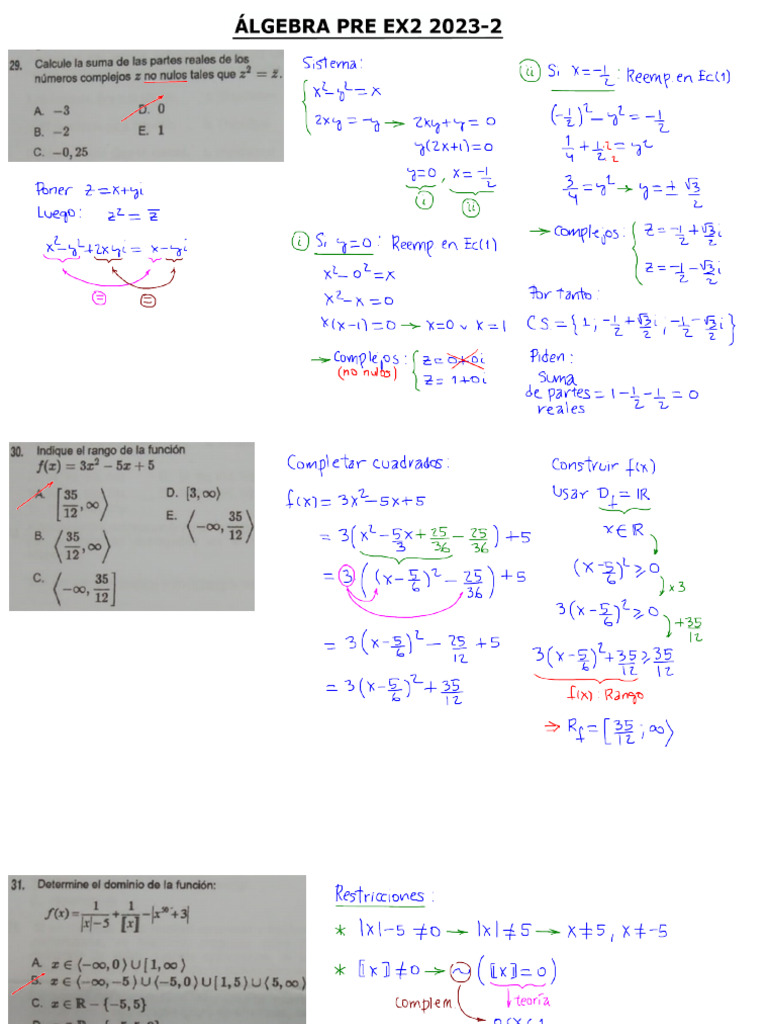 ÁLGEBRA PRE EX2 2023-2
29. Calcule la suma de las partes reales de los
números complejos z no nulos tales que z² = z̄.
A. −3
D. 0
B. −2
E. 1
C. −0,25
Poner z=x+yi
Luego: z² = z̄
x²−y²+2xyi = x−yi
=
=
Sistema:
x²−y²=x
2xy=−y → 2xy+y=0
y(2x+1)=0
y=0, x=−1/2
i
ii
i Si y=0: Reemp en Ec(1)
x²−0²=x
x²−x=0
x(x−1)=0 → x=0 ∨ x=1
→ Complejos: z=0+0i
(no nulos) z=1+0i
ii Si x=−1/2: Reemp en Ec(1)
(−1/2)²−y²=−1/2
1/4+1/2=y²
2
2
3/4=y² → y=±√3/2
→ Complejos: z=−1/2+√3/2i
z=−1/2−√3/2i
Por tanto:
CS={1; −1/2+√3/2i; −1/2−√3/2i}
Piden:
suma
de partes=1−1/2−1/2=0
reales
30. Indique el rango de la función
f(x) = 3x² − 5x + 5
A. [35/12, ∞⟩
D. [3, ∞⟩
B. ⟨35/12, ∞⟩
E. ⟨−∞, 35/12⟩
C. ⟨−∞, 35/12]
Completar cuadrados:
f(x)=3x²−5x+5
=3(x²−5/3x+25/36−25/36)+5
=3((x−5/6)²−25/36)+5
=3(x−5/6)²−25/12+5
=3(x−5/6)²+35/12
Construir f(x)
Usar D_f=ℝ
x∈ℝ
(x−5/6)²≥0
x3
3(x−5/6)²≥0
+35/12
3(x−5/6)²+35/12≥35/12
f(x): Rango
⇒ R_f=[35/12; ∞⟩
31. Determine el dominio de la función:
f(x)=1/(|x|−5)+1/⟦x⟧−|x⁵⁰+3|
A. x∈⟨−∞,0⟩∪[1,∞⟩
B. x∈⟨−∞,−5⟩∪⟨−5,0⟩∪[1,5⟩∪⟨5,∞⟩
C. x∈R−{−5,5}
Restricciones:
* |x|−5≠0 → |x|≠5 → x≠5, x≠−5
* ⟦x⟧≠0 → ~(⟦x⟧=0)
Complem
teoría